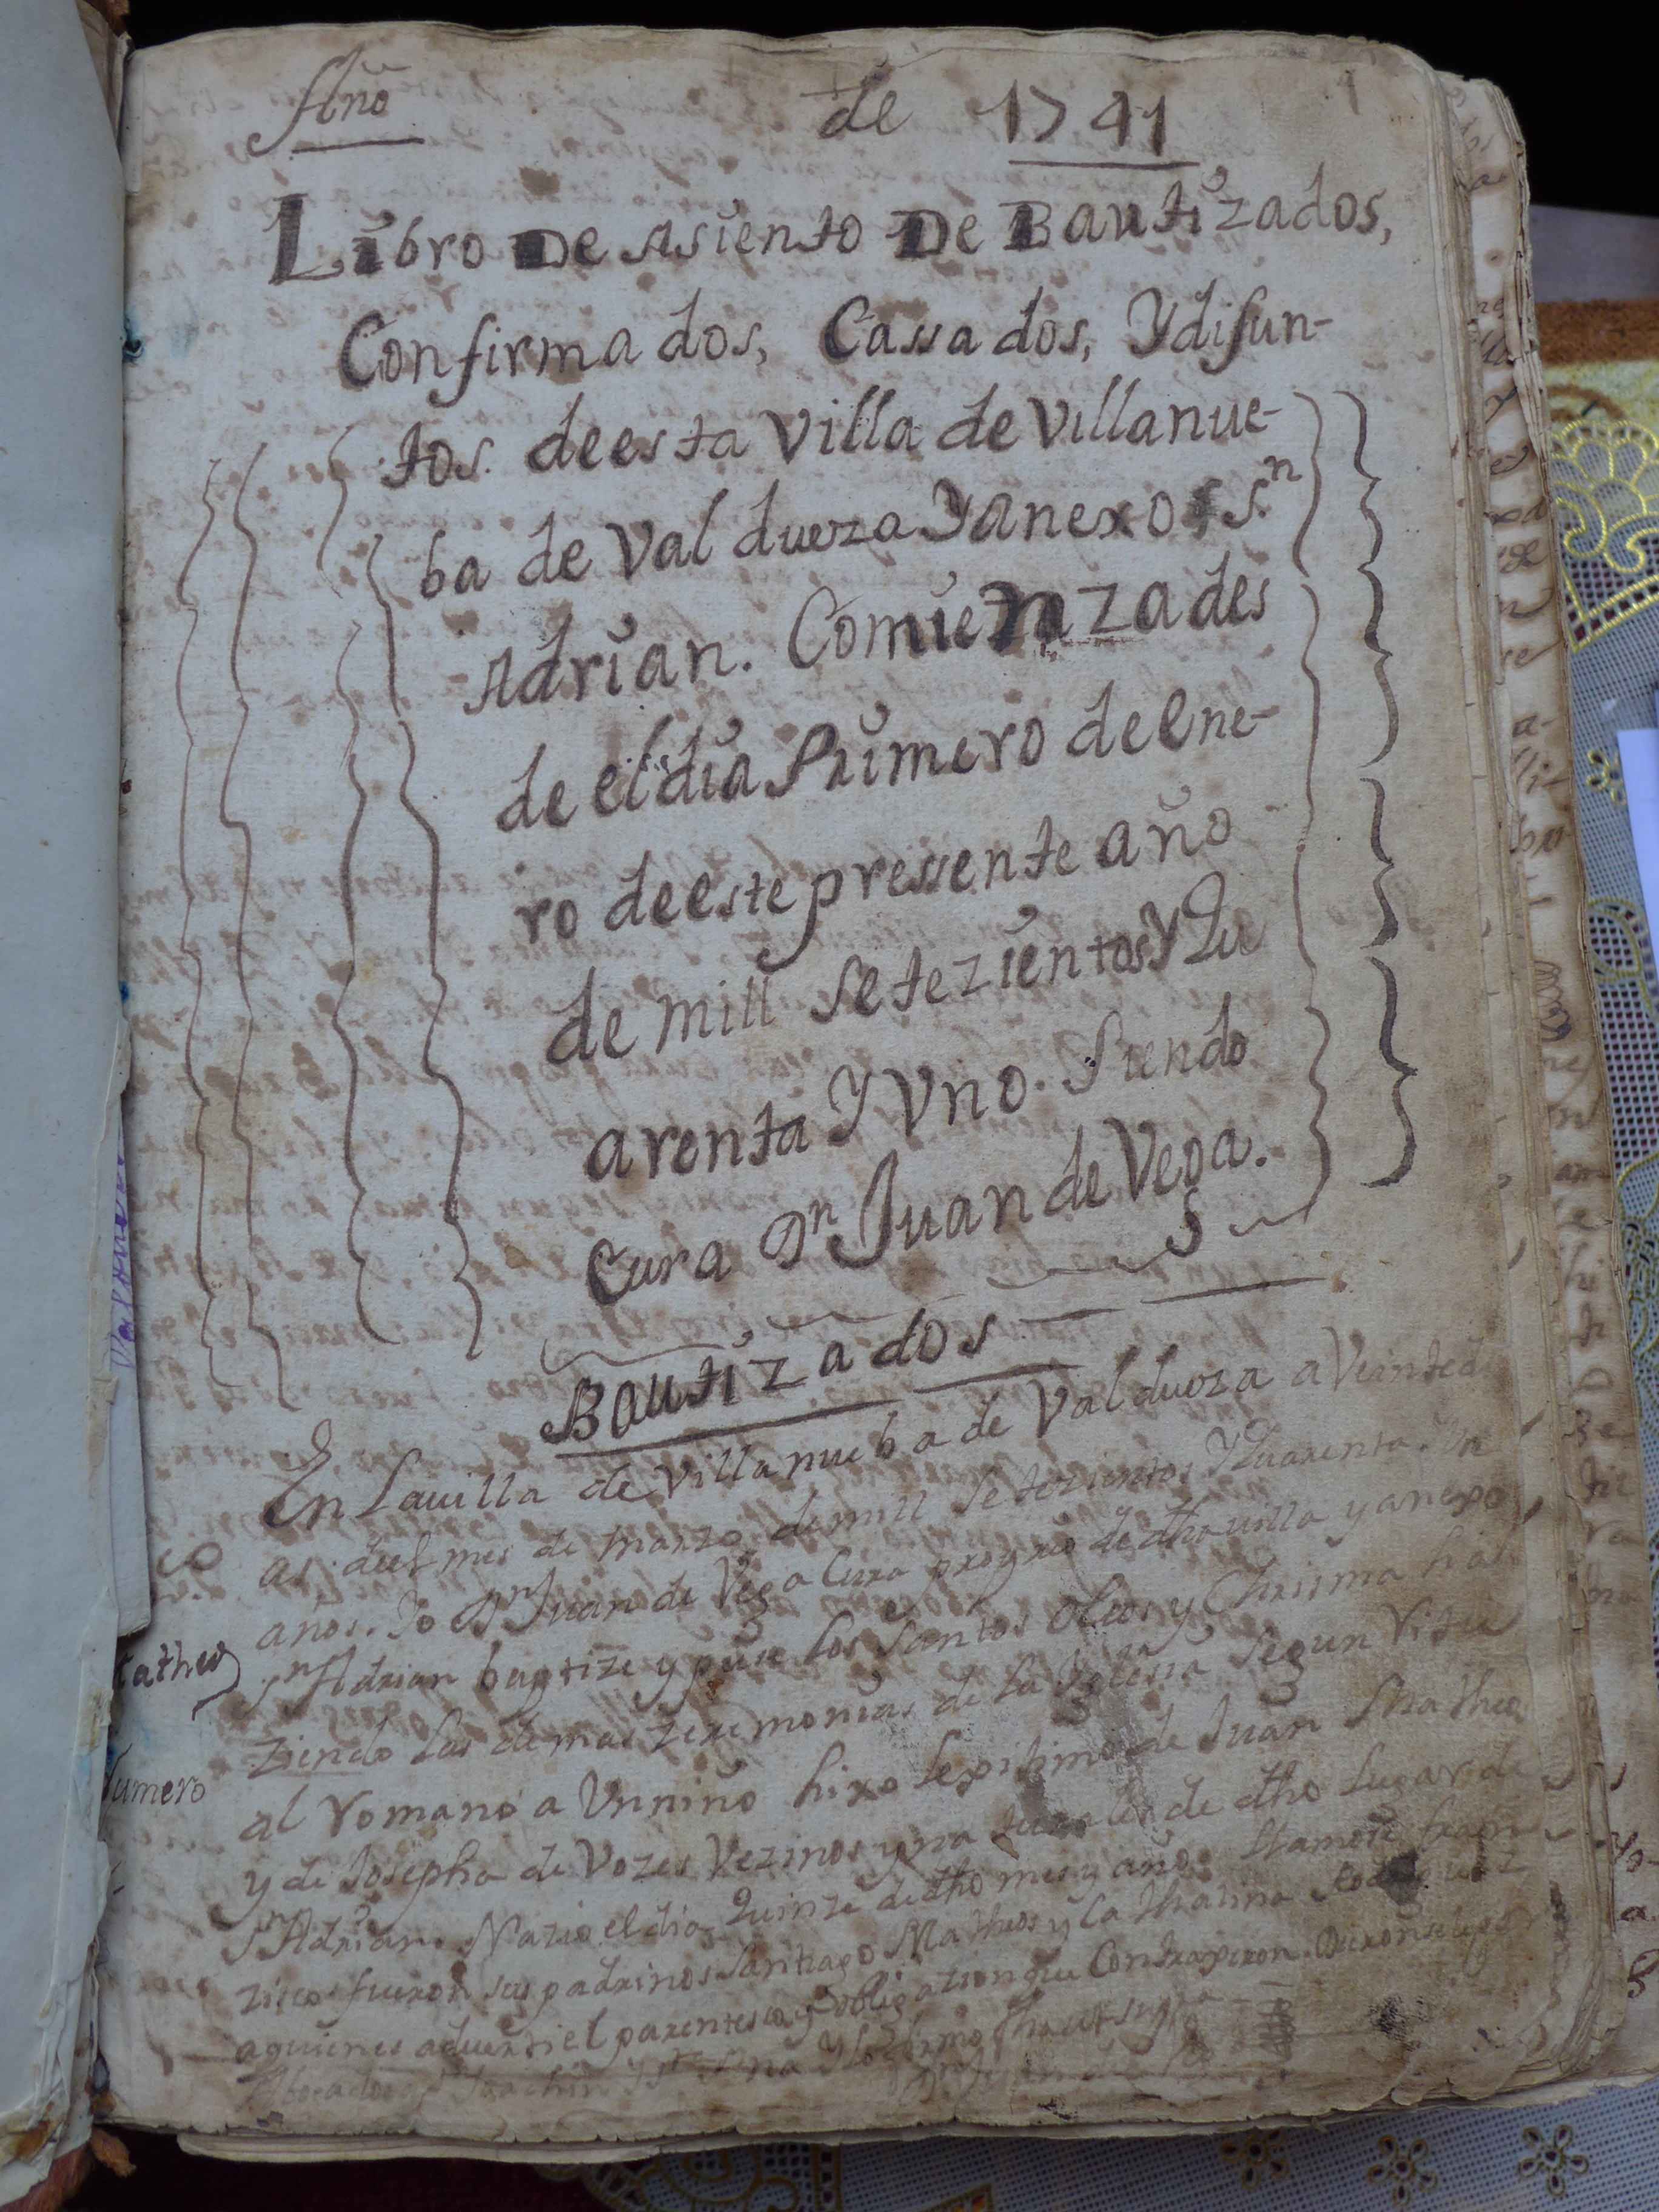 Año de 1741
Libro De Asiento De Bautizados,
Confirmados, Cassados, Y difun-
tos. de esta Villa de Villanue-
ba de Valdueza Y anexo S.n
Adrian. Comienza des
de el dia Primero de ene-
ro de este pressente año
de mill setezientos Y Qu
arenta Y Vno. Siendo
Cura Dn Juan de Vega.
Bautizados
En la uilla de Villanueba de Valdueza a Veinte di
as del mes de marzo de mill setezientos Y Quarenta Y un
años. Yo Dn Juan de Vega Cura proprio de dha uilla y anexo
Sn Adrian baptize y puse los Santos oleos y Chrisma ha
ziendo las demas zeremonias de la Yglesia segun Ritu
al Romano a Un niño hixo lexitimo de Juan Matheo
y de Josepha de Vozes Vezinos y naturales de dho lugar de
Sn Adrian. Nazio el dia Quinze de dho mes y año. llamose fran
zisco fueron sus padrinos Santiago Matheos y Cathalina Rodriguez
a quienes aduerti el parentesco y obligazion que Contraxeron. Dieronsele por
Abogados a Sn Joachin y Sta Ana Y lo firmo fha ut supra
Dn Juan de Vega